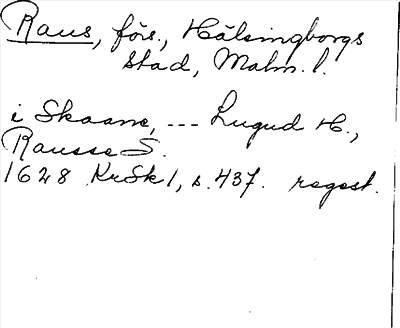 Raus, förs., Hälsingborgs
stad, Malm. l.
i Skaane, --- Lugud H.,
Rausse S.
1628 KrSk 1, s. 437. regest.